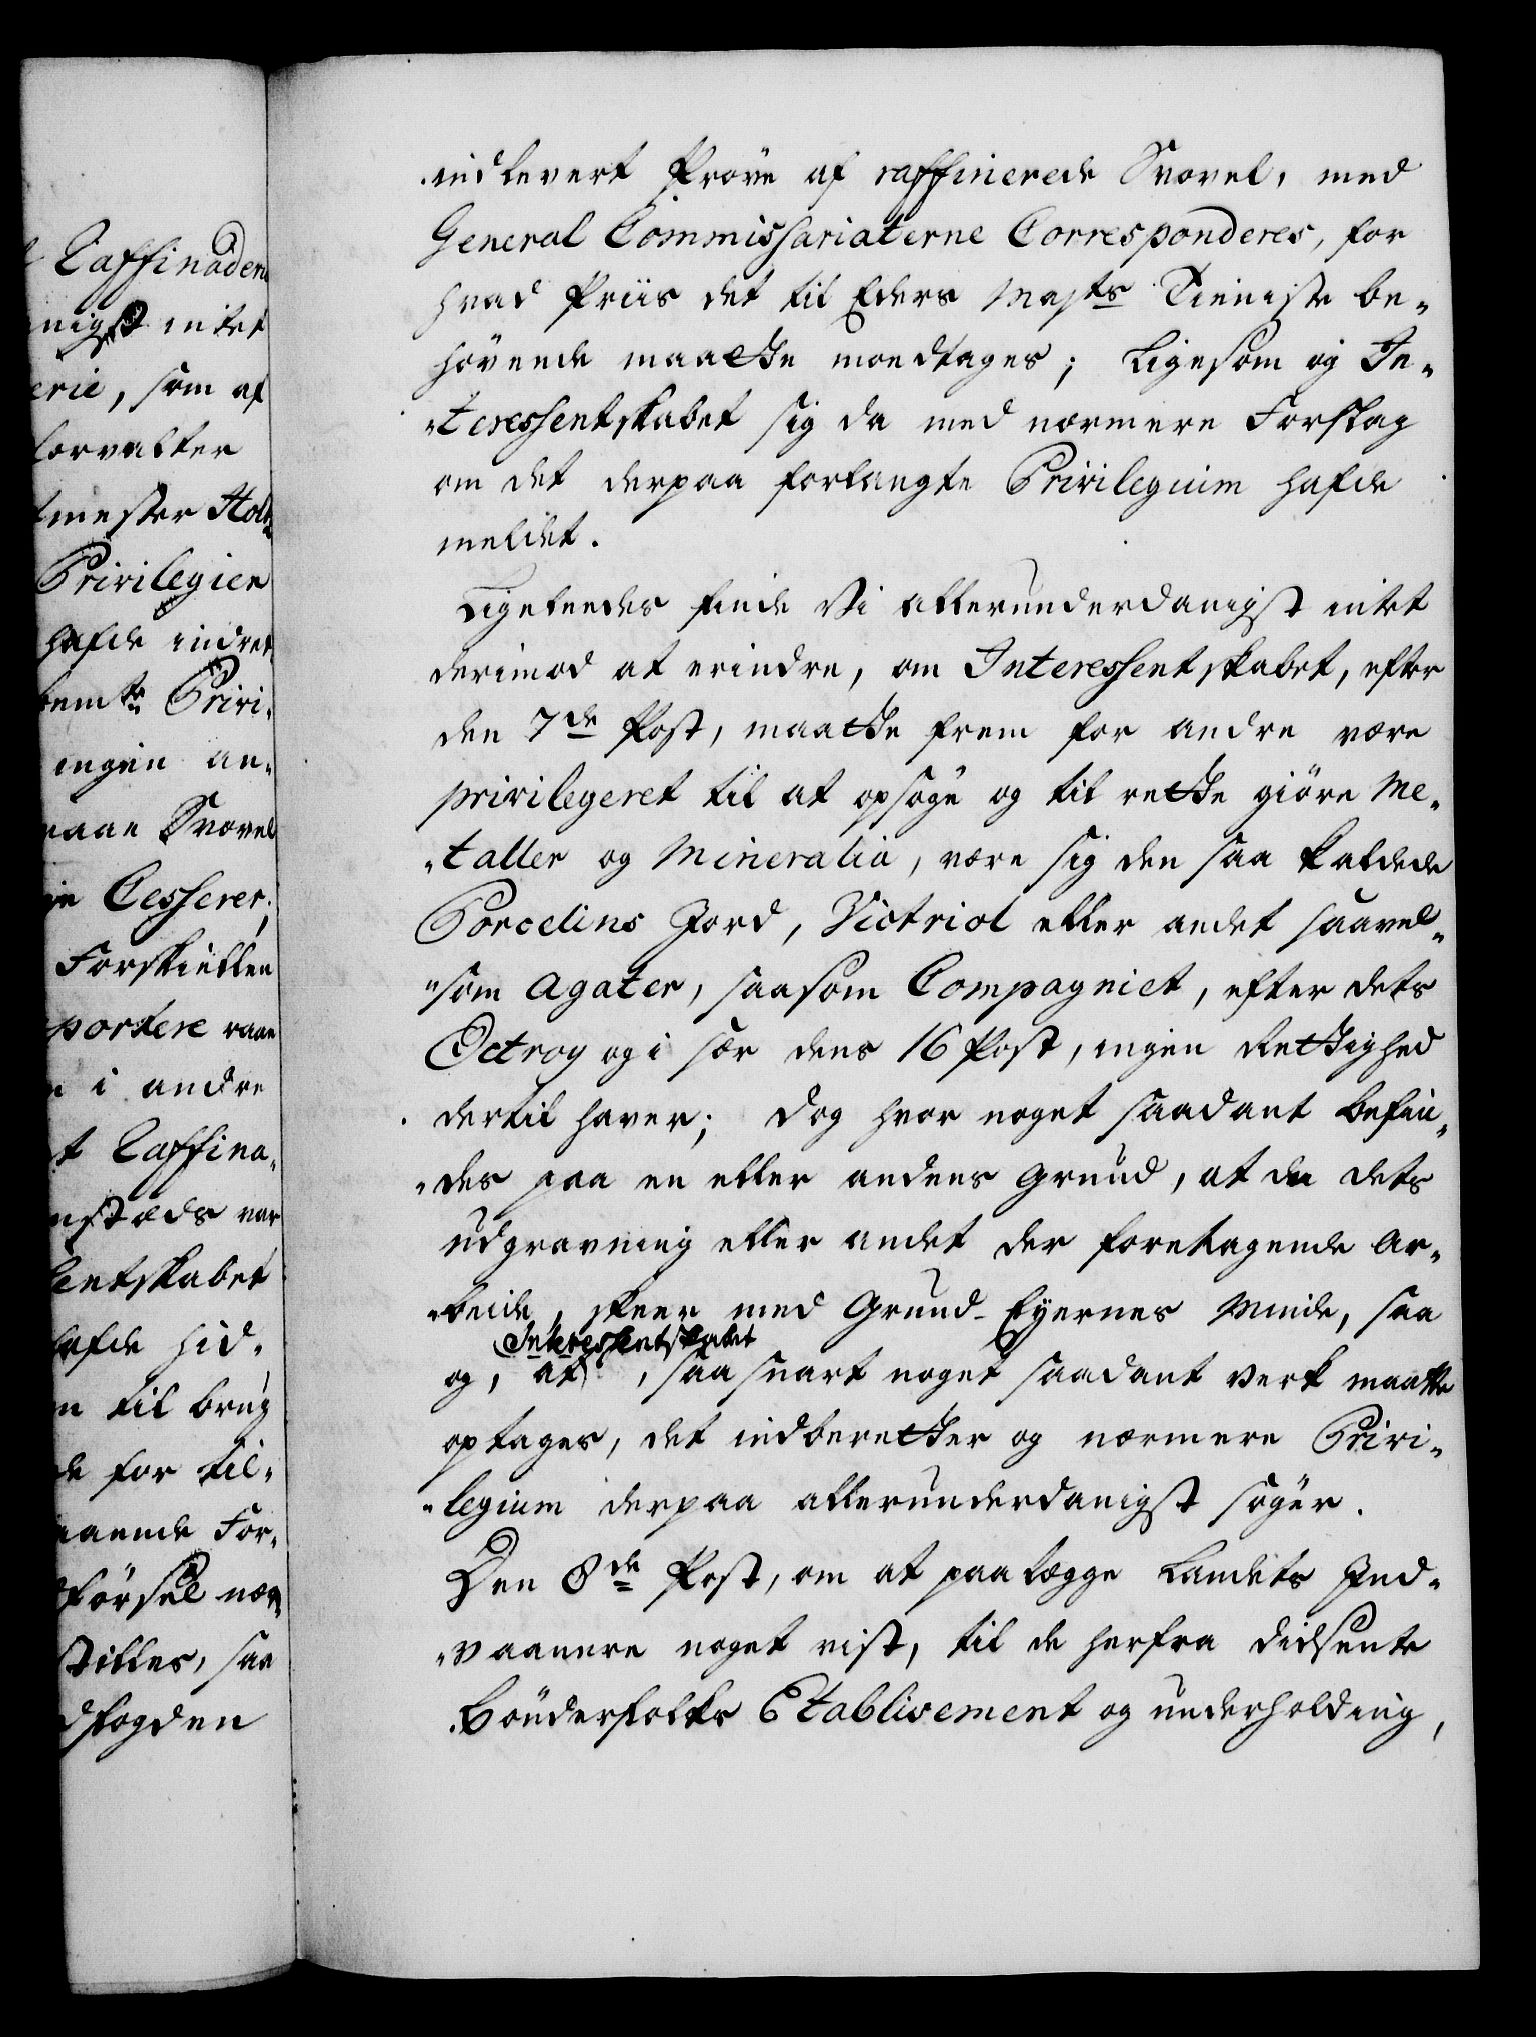 t Raffinaderi
nigst intet
erie, som af
forvalter
tmester Holt,
Privilegier
hafde indret
bemte Privi-
ingen an-
raae Svovel
ie Cesserer;
Forskiellen
portere raae
i andre
t Raffina-
nstæds var
sentskabet
hafde hid-
n til brug
de for til-
aaende For-
tförsel næv
stilles, saa
dfogden
indlevert Pröve af raffinerede Svovel, med
General Commissariaterne Corresponderes, for
hvad Priis det til Eders Maysts Tieniste be-
hövende maatte modtages; Ligesom og In-
teressentskabet sig da med nærmere Forslag
om det derpaa forlangte Privilegium hafde
meldet.
Ligeleedes finde Vi allerunderdanigst intet
derimod at erindre, om Interessentskabet, efter
den 7de Post, maatte frem for andre være
privilegeret til at opsöge og til rette giöre Me-
taller og Mineralia, være sig den saa kaldede
Porcelins Jord, Victriol eller andet saavel-
som Agater, saasom Compagniet, efter dets
Octroy og i sær dens 16 Post, ingen Rettighed
dertil haver; dog hvor noget saadant befin-
des paa en eller andens Grund, at da dets
udgravning eller andet der foretagende Ar-
beide, skeer med Grund-Eyernes Minde, saa
Interessentskabet
og, at, saa snart noget saadant verk maatte
optages, det indberetter og nærmere Privi-
legium derpaa allerunderdanigst söger.
Den 8de Post, om at paalægge Landets Ind-
vaanere noget vist, til de herfra didsente
Bönderfolks Etablisement og underholding,